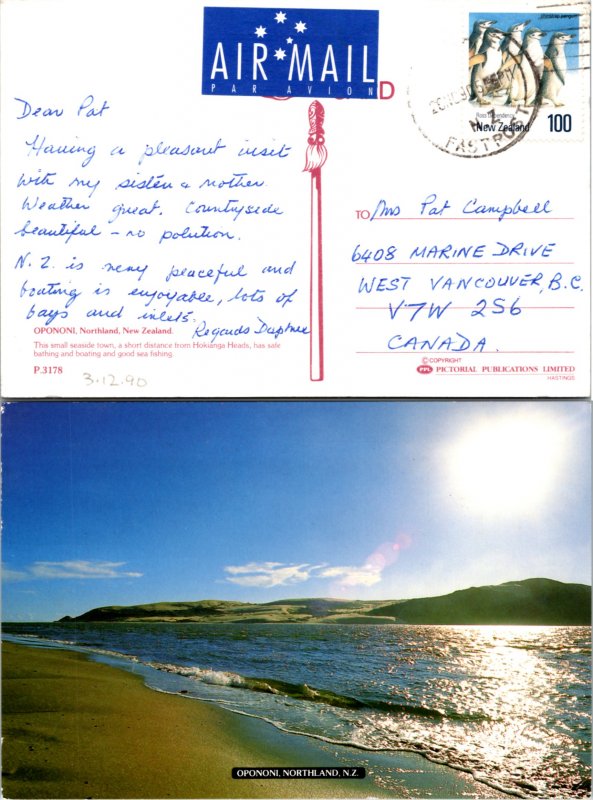 AIR MAIL
PAR AVION
D
chinstrap penguin
Ross Dependency
New Zealand
100
N.Z.
FASTPOST
Dear Pat
Having a pleasant visit
with my sister & mother.
Weather great. Countryside
beautiful – no polution.
N.Z. is very peaceful and
boating is enjoyable, lots of
bays and inlets.
Regards Daphne
OPONONI, Northland, New Zealand.
This small seaside town, a short distance from Hokianga Heads, has safe
bathing and boating and good sea fishing.
P.3178
3.12.90
TO Mrs Pat Campbell
6408 MARINE DRIVE
WEST VANCOUVER, B.C.
V7W 2S6
CANADA.
© COPYRIGHT
PPL PICTORIAL PUBLICATIONS LIMITED
HASTINGS
OPONONI, NORTHLAND, N.Z.